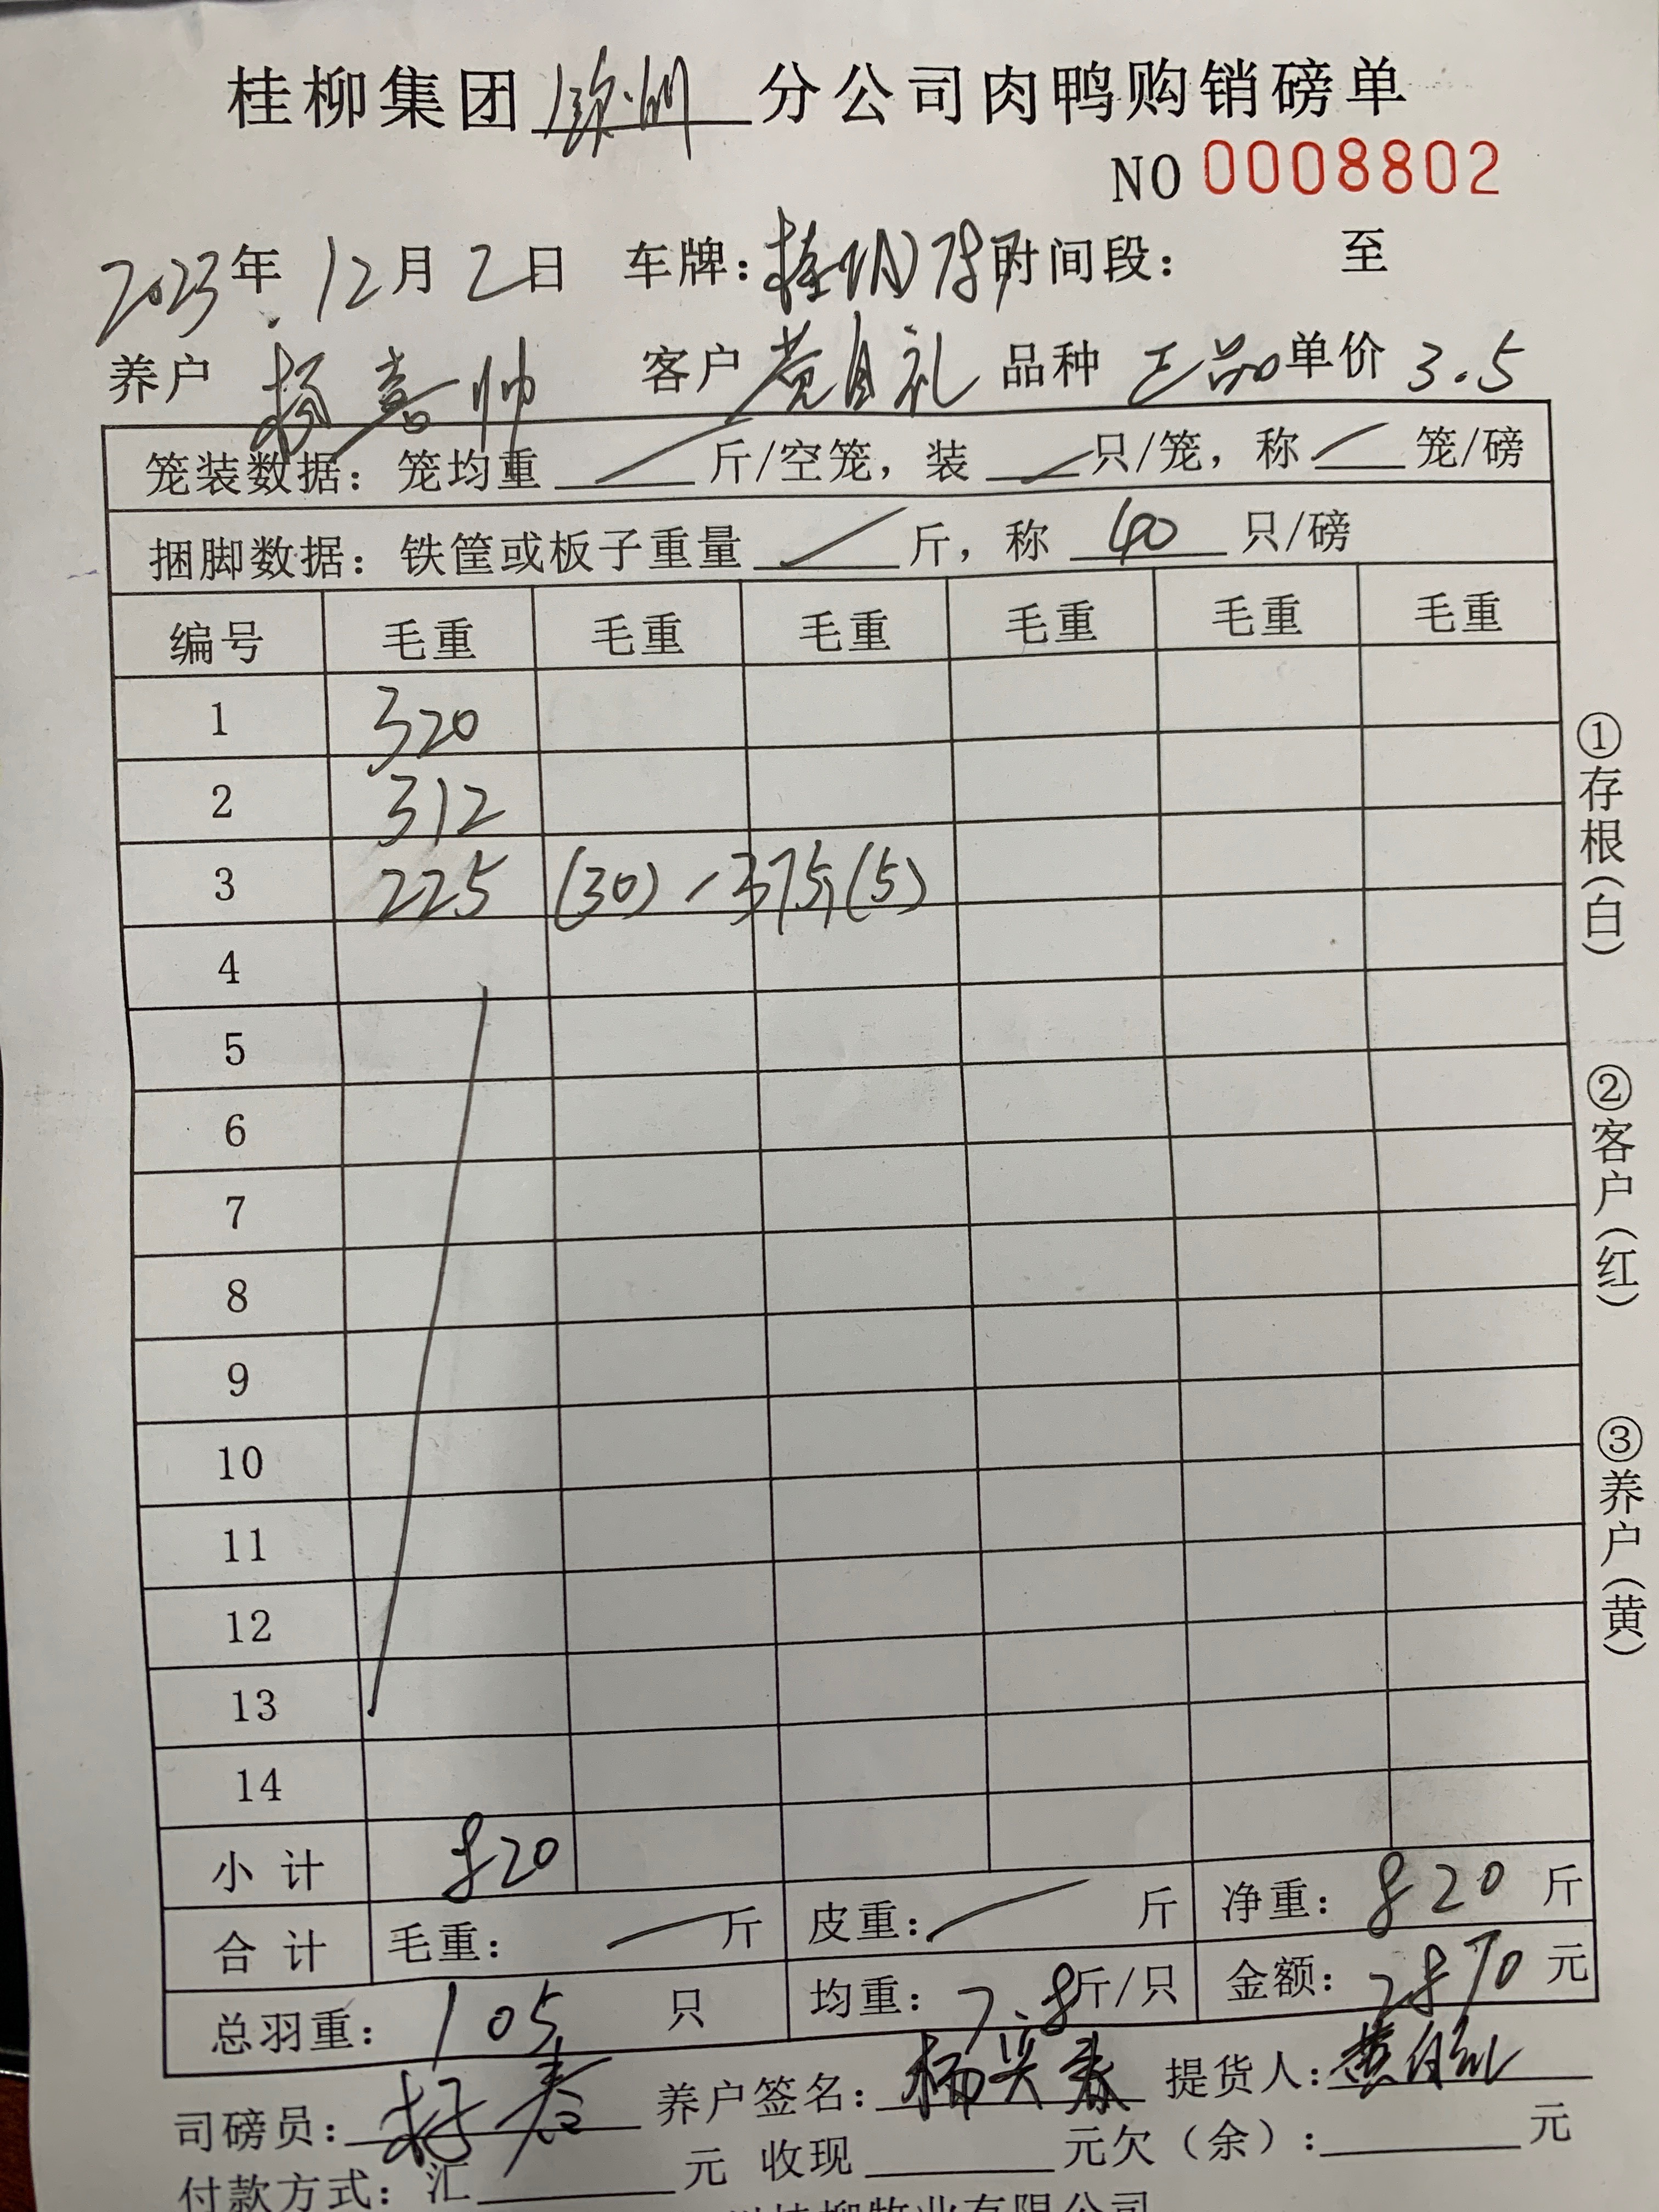 桂柳集团 钦州 分公司肉鸭购销磅单
NO 0008802
2023年 12月 2日 车牌: 时间段: 至
养户 杨喜帅 客户 黄自礼 品种 正品 单价 3.5
笼装数据: 笼均重 / 斤/空笼, 装 / 只/笼, 称 / 笼/磅
捆脚数据: 铁筐或板子重量 / 斤, 称 40 只/磅
编号 毛重 毛重 毛重 毛重 毛重 毛重
1 320
2 312
3 225 (30) - 37斤(5)
4
5
6
7
8
9
10
11
12
13
14
小计 820
合计 毛重: — 斤 皮重: / 斤 净重: 820 斤
总羽重: 105 只 均重: 7.8斤/只 金额: 2870 元
司磅员: 养户签名: 杨兴春 提货人:
付款方式: 汇 元 收现 元欠(余): 元
桂柳牧业有限公司
①存根(白)
②客户(红)
③养户(黄)